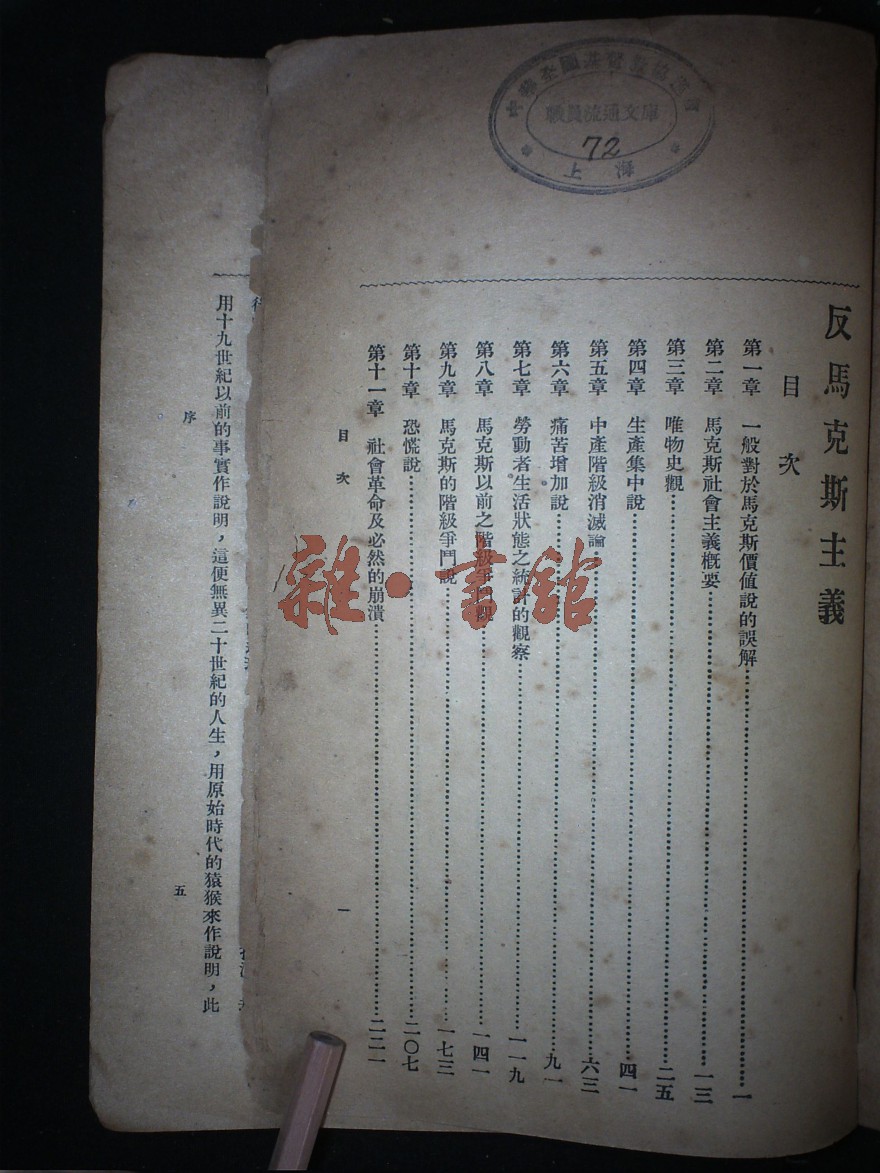 反馬克斯主義
目次
第一章 一般對於馬克斯價值說的誤解……一
第二章 馬克斯社會主義槪要……一三
第三章 唯物史觀……二五
第四章 生產集中說……四一
第五章 中產階級消滅論……六三
第六章 痛苦增加說……九一
第七章 勞動者生活狀態之統計的觀察……一一九
第八章 馬克斯以前之階級爭鬥說……一四一
第九章 馬克斯的階級爭鬥說……一七三
第十章 恐慌說……二〇七
第十一章 社會革命及必然的崩潰……二二一
目次
一
中華全國基督教協進會
職員流通文庫
72
上海
雜·書館
用十九世紀以前的事實作說明，這便無異二十世紀的人生，用原始時代的猿猴來作說明，此
序
五